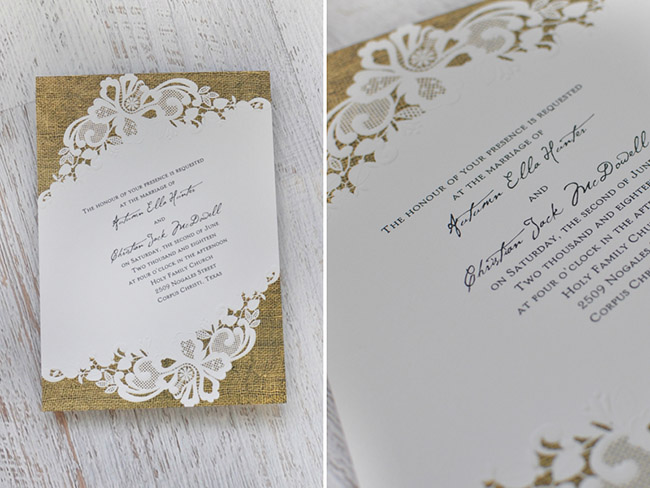 The honour of your presence is requested
at the marriage of
Autumn Ella Hunter
and
Christian Jack McDowell
on Saturday, the second of June
Two thousand and eighteen
at four o'clock in the afternoon
Holy Family Church
2509 Nogales Street
Corpus Christi, Texas
The honour of your presence is requested
at the marriage of
Autumn Ella Hunter
and
Christian Jack McDowell
on Saturday, the second of June
Two thousand and eighteen
at four o'clock in the after
Holy Family Church
2509 Nogales Street
Corpus Christi,